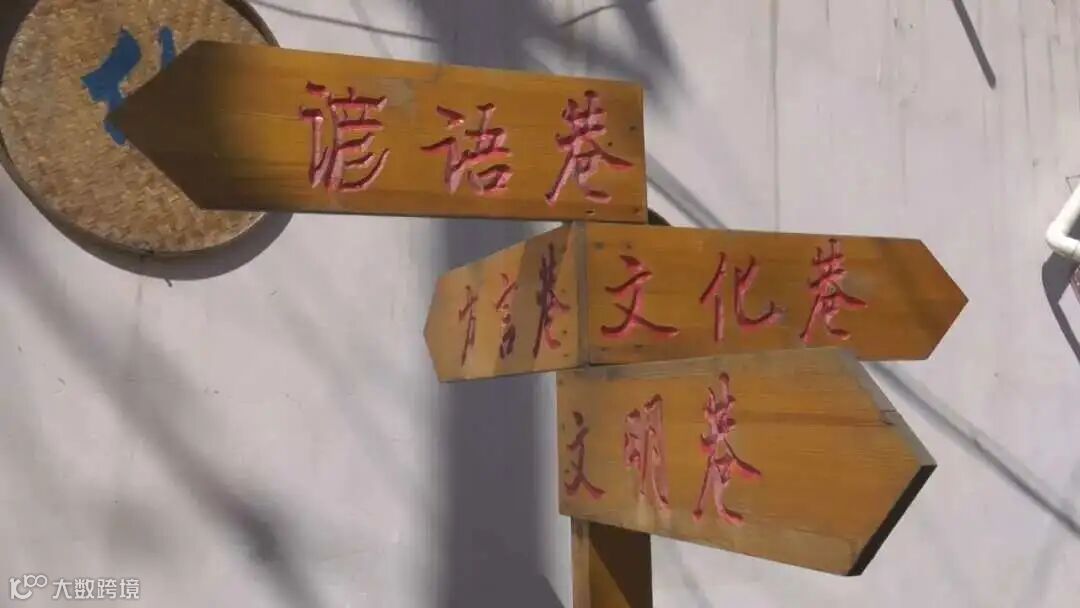 谚语巷
方言巷
文化巷
文明巷
大数跨境